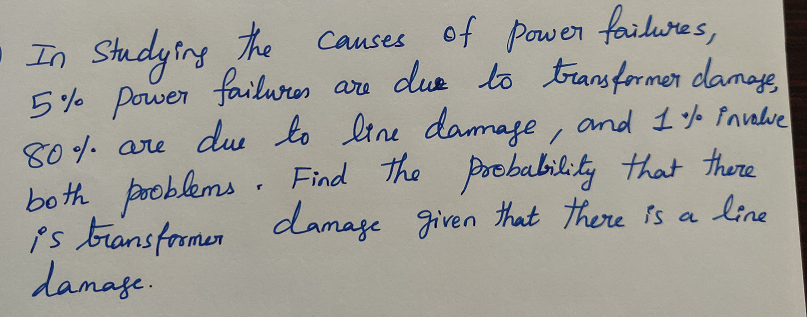 In Studying the causes of power failures,
5% power failures are due to transformer damage,
80% are due to line dammage, and 1% involve
both problems. Find the probability that there
is transformer damage given that there is a line
damage.